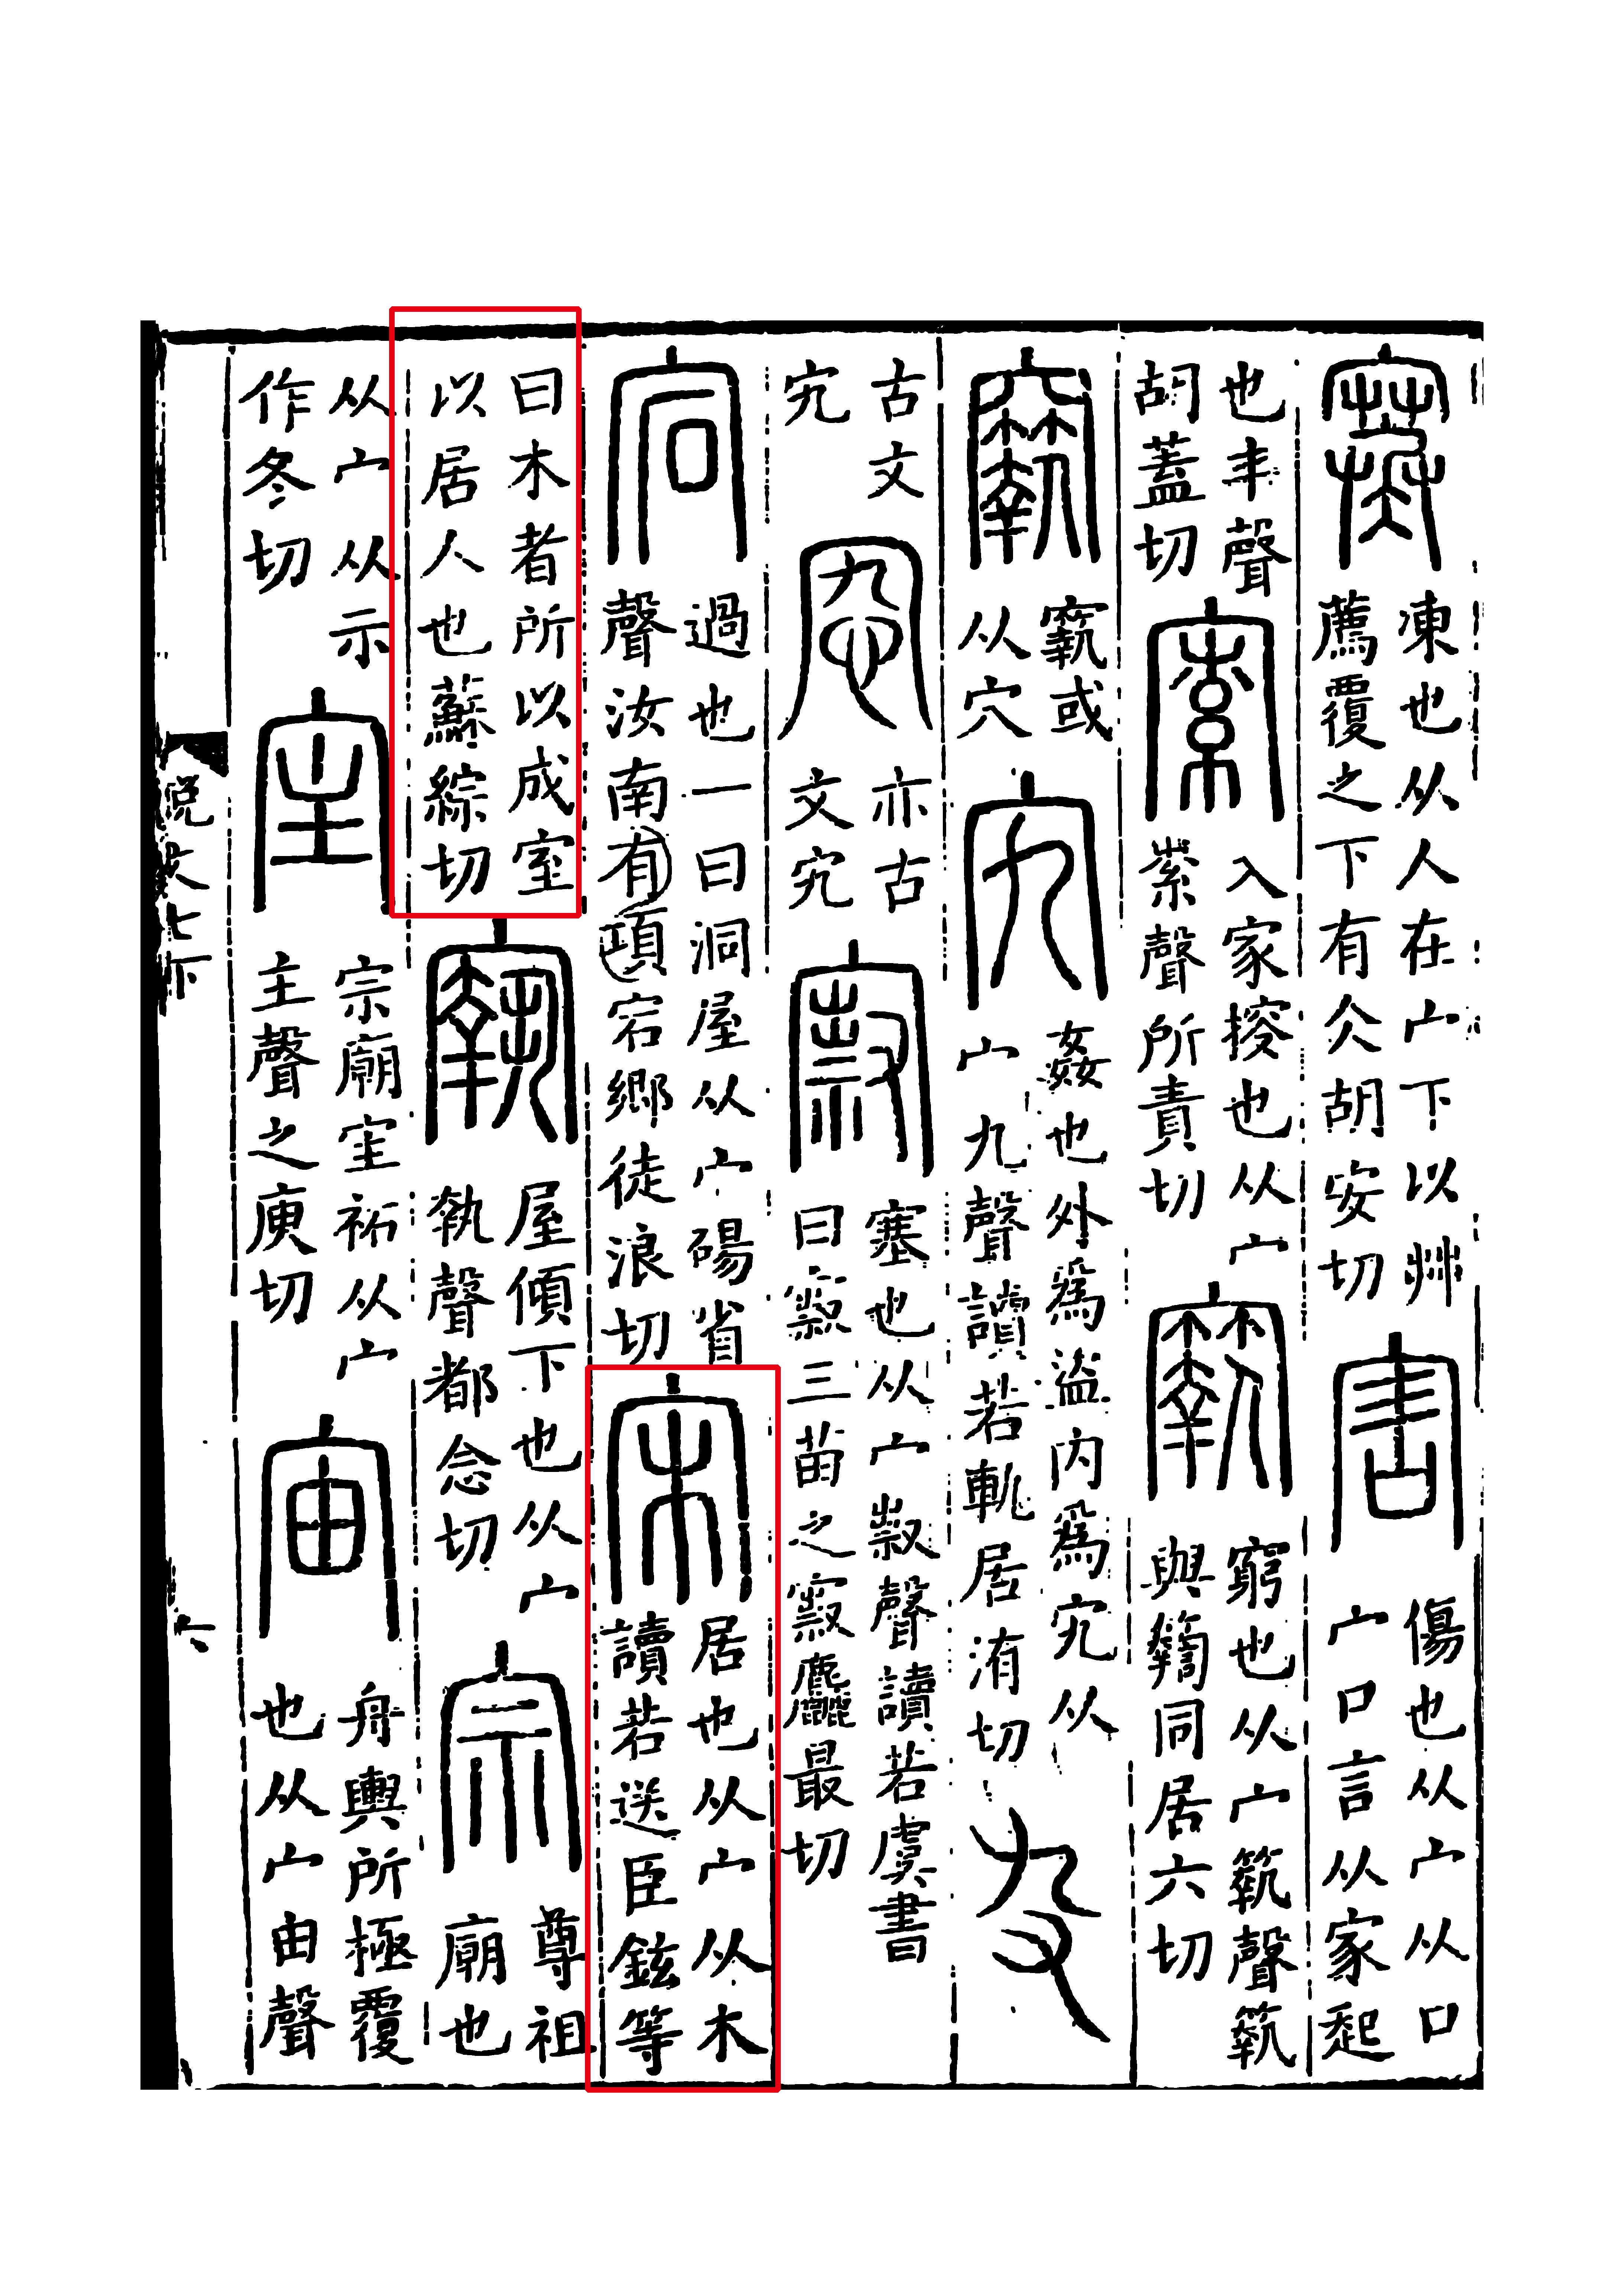 寒
凍也从人在宀下以茻
薦覆之下有仌胡安切
害
傷也从宀从口
宀口言从家起
也丯聲
胡蓋切
𡩡
入家搜也从宀
索聲所責切
窮也从宀𥷚聲𥷚
與𥷚同居六切
或
从穴
宄
姦也外爲盗内爲宄从
宀九聲讀若軌居洧切
古文
宄
亦古
文宄
塞也从宀𣀳聲讀若虞書
曰三苗之麤最切
宕
過也一曰洞屋从宀碭省
聲汝南有項宕鄉徒浪切
宋
居也从宀从木
讀若送臣鉉等
曰木者所以成室
以居人也蘇綜切
㝪
屋傾下也从宀
執聲都念切
宗
尊祖
廟也
从宀从示
作冬切
宔
宗廟宔祏从宀
主聲之庾切
宙
舟輿所極覆
也从宀由聲
說文七下
六